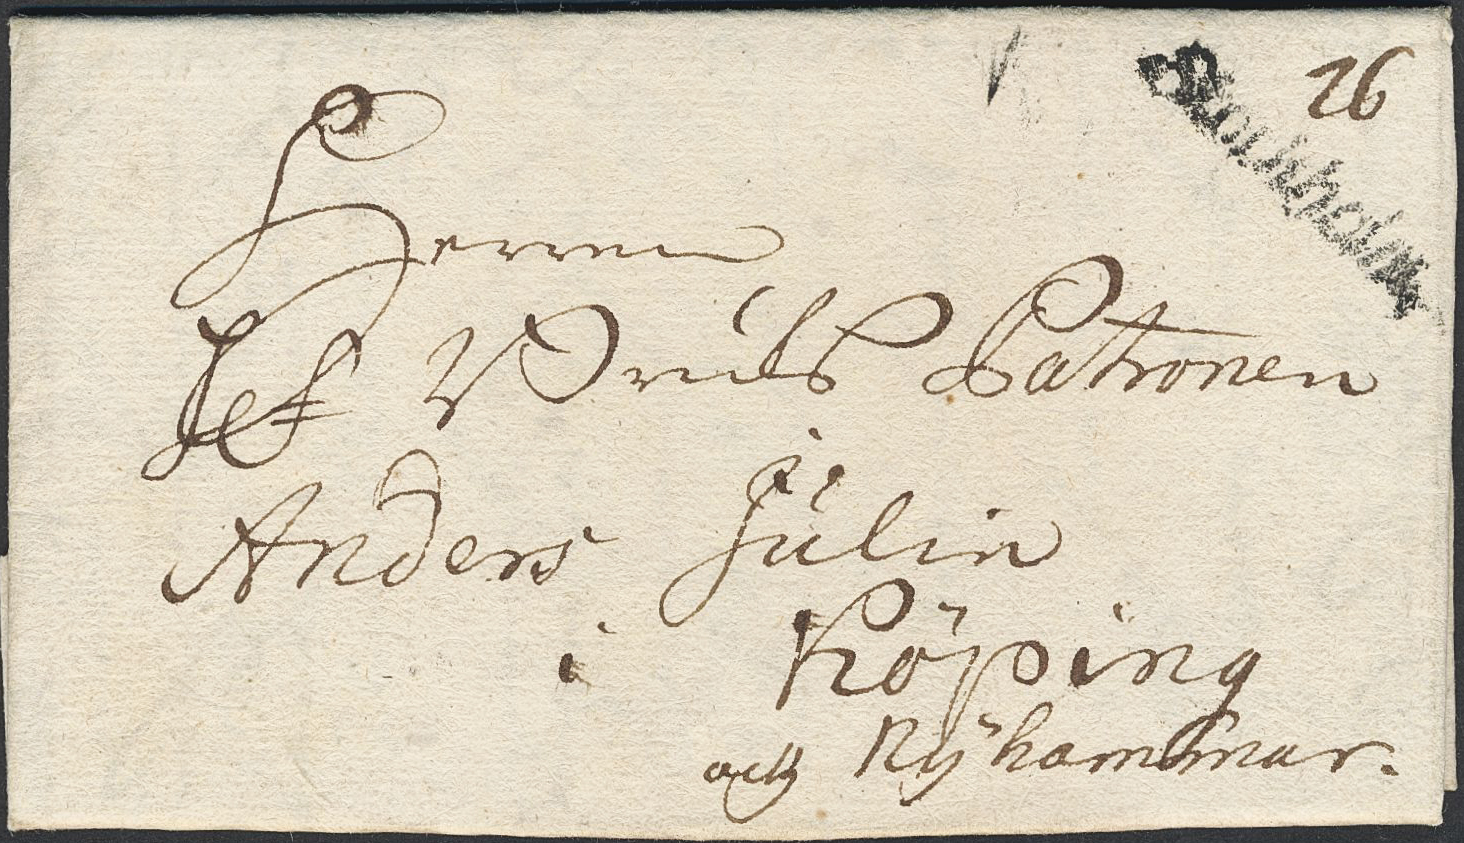 26
Stockholm
Herren
Bruks Patronen
Anders Julin
i Köping
och Nyhammar.